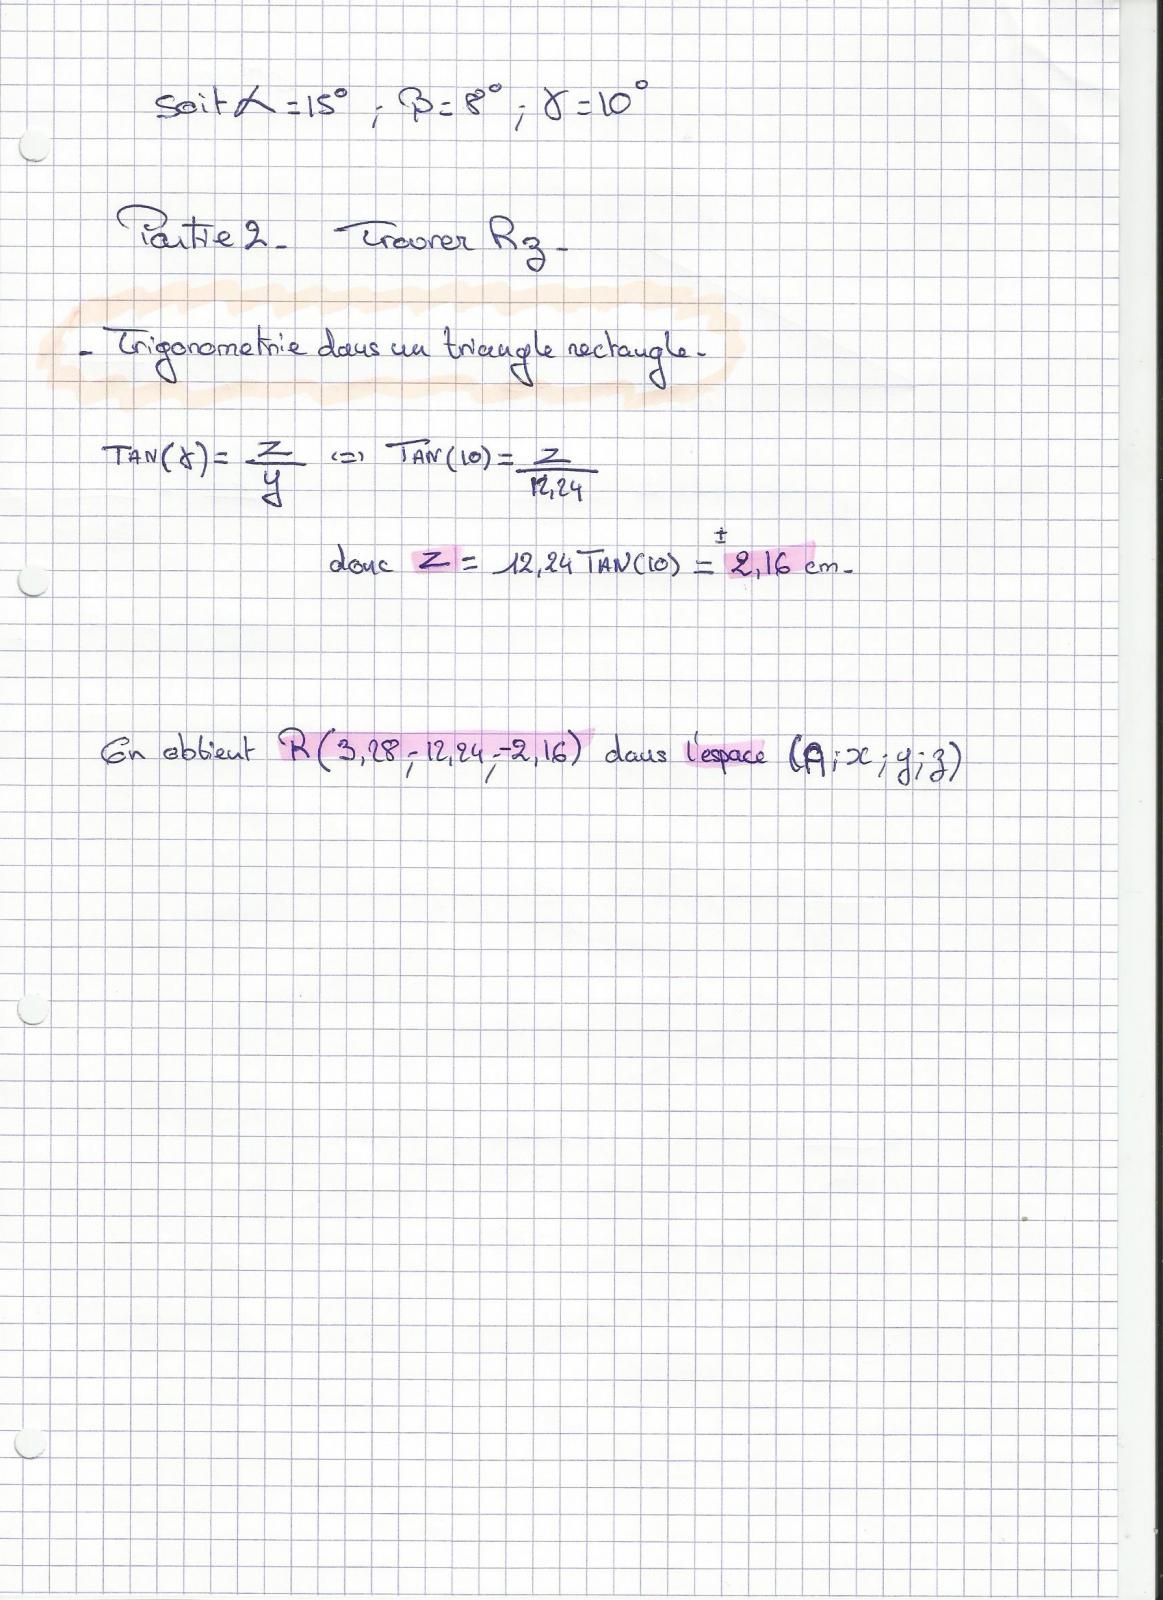 soit α = 15° ; β = 8° ; γ = 10°
Partie 2 - Trouver Rz -
- Trigonometrie dans un triangle rectangle -
TAN(γ) = z/y <=> TAN(10) = z/12,24
donc z = 12,24 TAN(10) = ± 2,16 cm -
On obtient R(3,28 ; -12,24 ; -2,16) dans l'espace (A ; x ; y ; z)